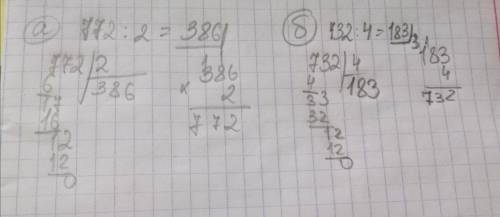 а) 772 : 2 = 386
772 | 2
6 | 386
17
16
12
12
0
386
× 2
772
б) 732 : 4 = 183
732 | 4
4 | 183
33
32
12
12
0
3
183
4
732